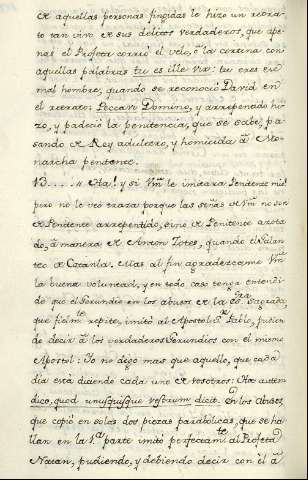 de aquellas personas fingidas le hizo un retra-
to tan vivo de sus delitos verdaderos, que ape-
nas el Profeta corrió el velo, ò la cortina con
aquellas palabras tu es ille vir: tu eres ese
mal hombre, quando se reconoció David en
el retrato: Peccavi Domino, y arrepentido hi-
zo, y padeció la penitencia, que se sabe, pa-
sando de Rey adultero, y homicida à Mo-
narcha penitente.
Ha! y si Vm le imitara Penitente mio!
pero no le veo traza porque las señas de Vm no son
de Penitente arrepentido, sino de Penitente azota-
do, à manera de Anton Zotes, quando el Galan-
teo de Catanla. Mas al fin agradezcame Vm
la buena voluntad, y en todo caso tenga entendi-
do que el Gerundio en los abusos de la Sagrada,
que repite, imitó al Apostol Sn Pablo, pudien-
do decir à los verdaderos Gerundios con el mismo
Apostol: Yo no digo mas que aquello, que cada
dia está diciendo cada uno de vosotros: Hoc autem
dico, quod unusquisque vestrum dicit. En los Abusos,
que copió en solas dos piezas parabolicas, que se ha-
llan en la 1a parte imitó perfectamte al Profeta
Natan, pudiendo, y debiendo decir con él à